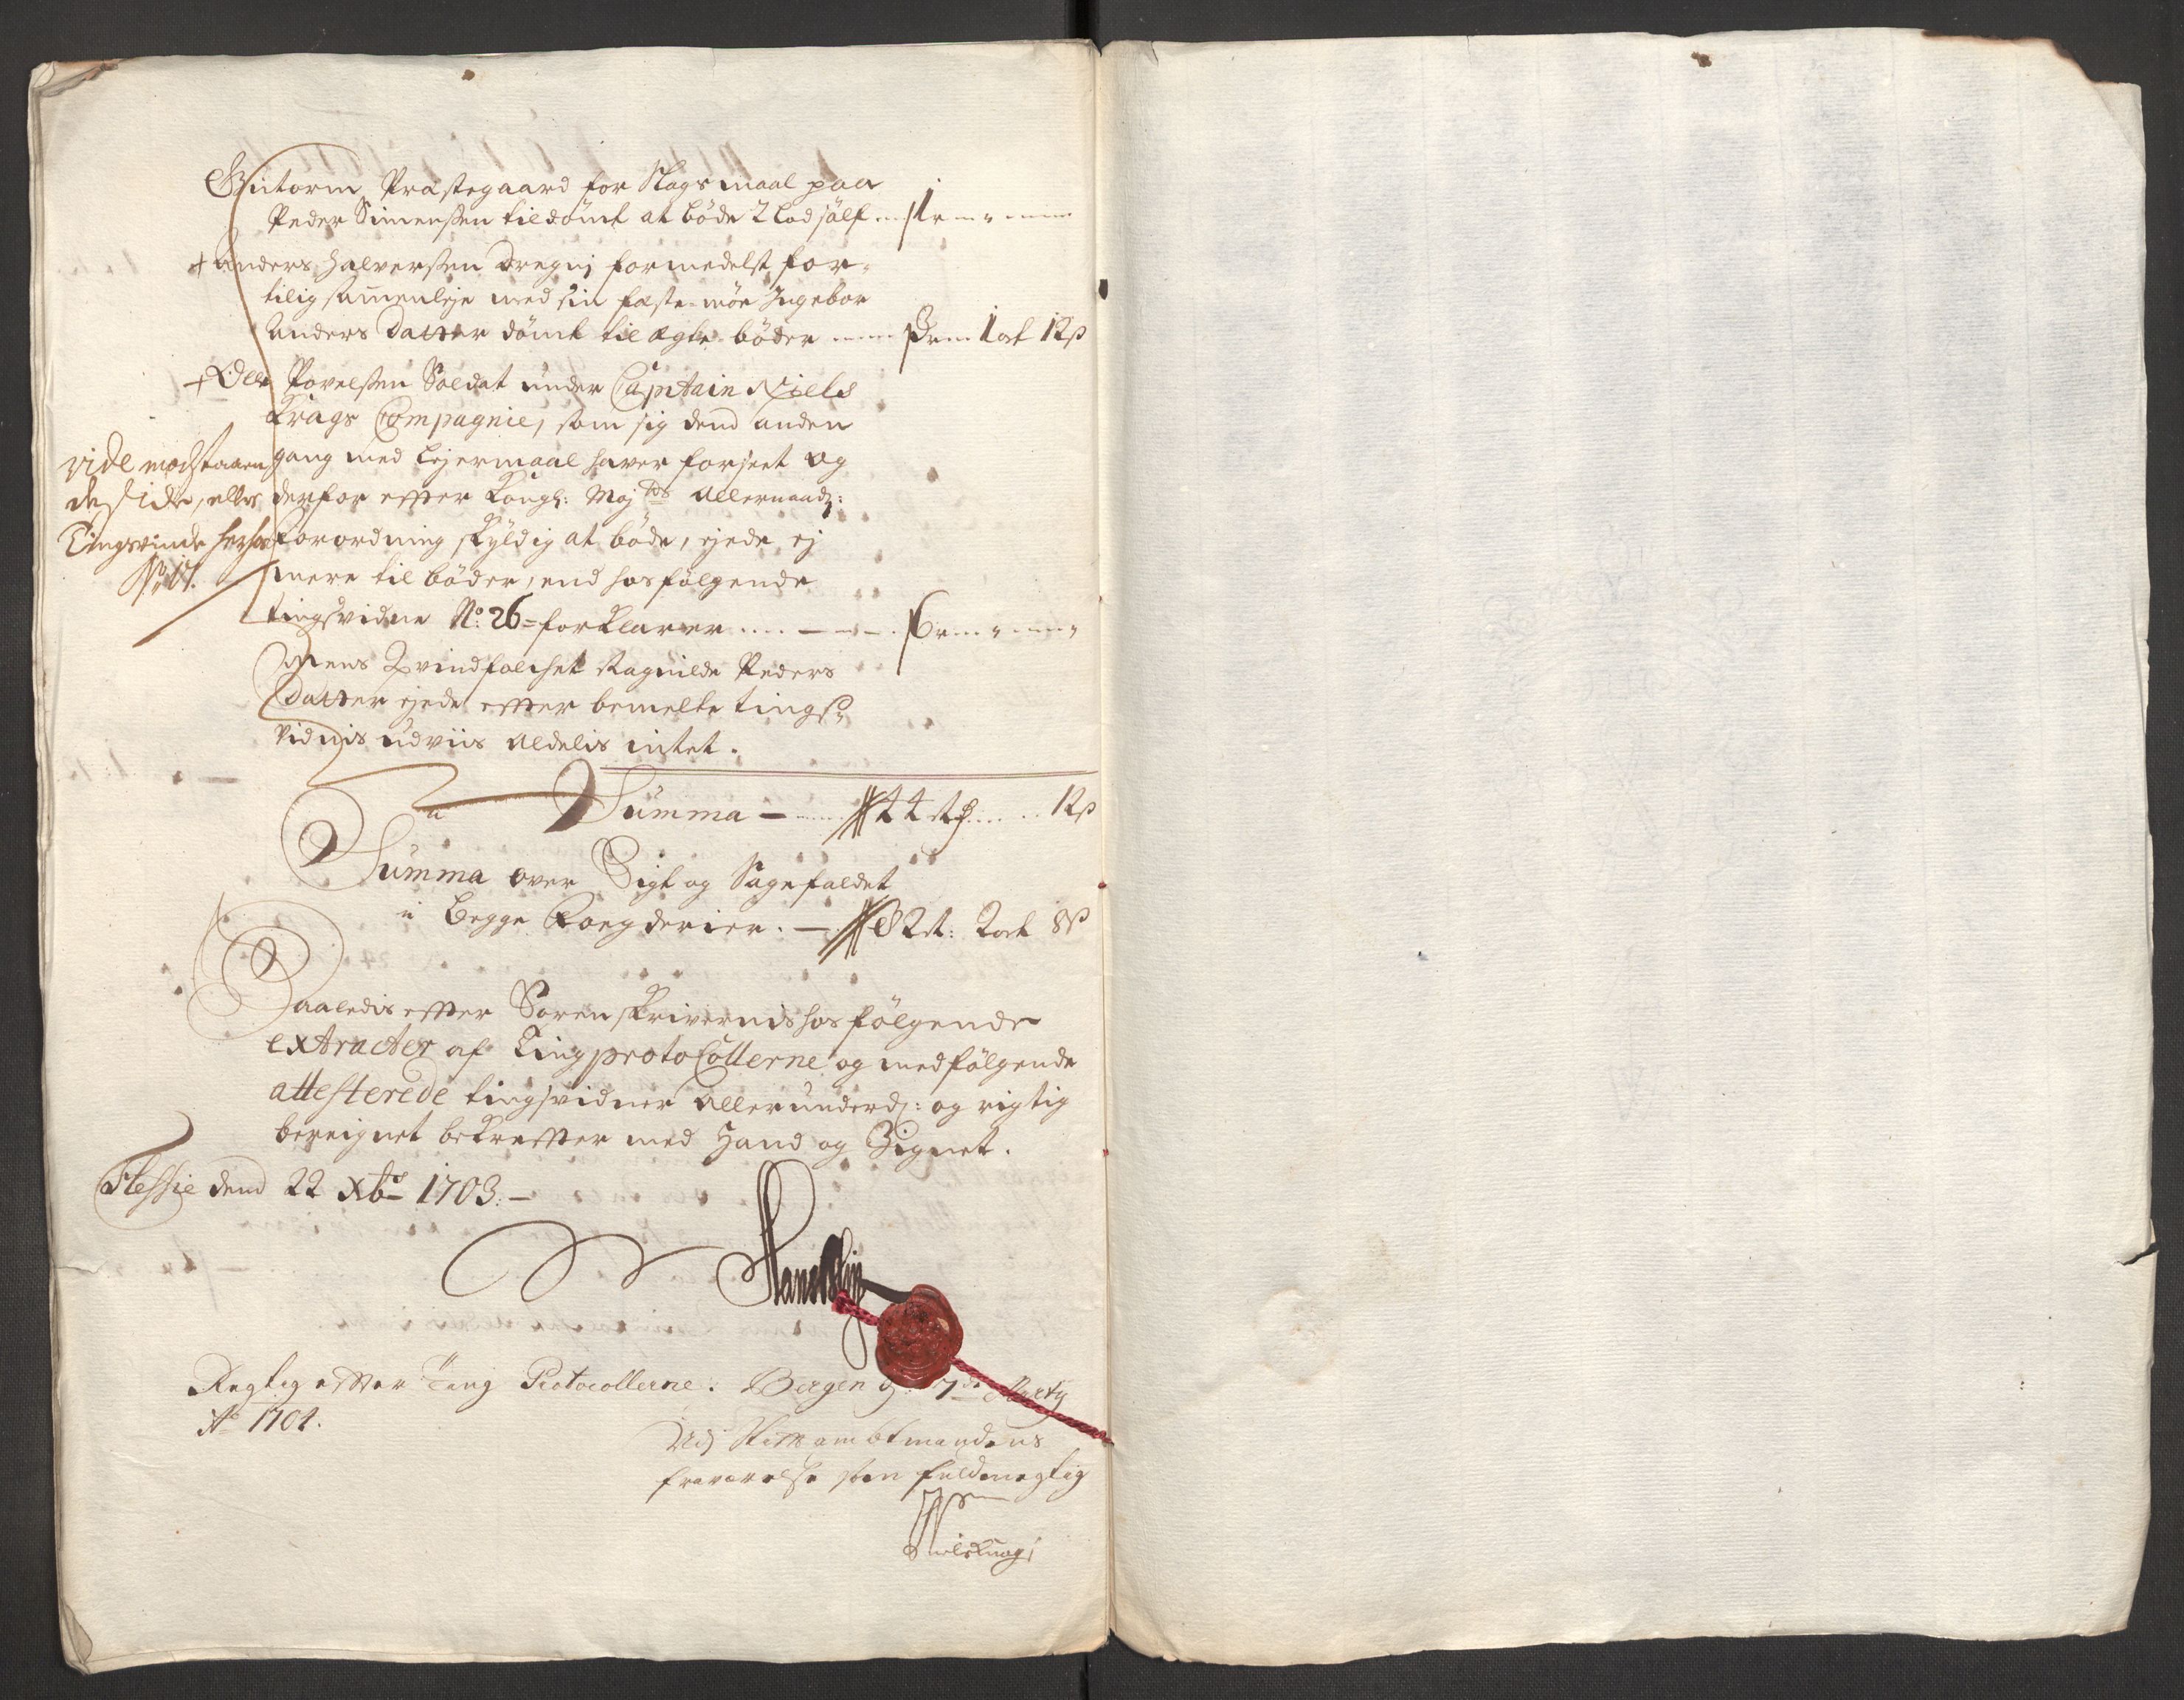 Guttorm Præstegaard for Slagsmaal paa
Peder Simensßen tildömt at böde 2 Lod sölf ... 1 r
+ Anders Halversßen Dregnj formedelst for-
tilig sammenleje med sin fæste-möe Ingebor
Anders Datter dömt til ægte-böder ... 3 r 1 ort 12 s
+ Ole Povelsßen Soldat under Captain Niels
Krags Compagnie, som sig dend anden
gang med Lejermaal haver forseet og
derfor effter Kongl: Majts Allernaad:
forordning skyldig at böde, ejede ej
mere til böder, end hosfölgende
tingsvidne No: 26 = forklarer .... 6 r
vide modstaaen
de side, eller
Tingsvinde herhos
No 17.
Mens Qvindfolchet Ragnilde Peders
Datter ejede effter bemelte tings-
vidnis udviis aldelis intet.
Summa — 44 r ... 12 s
Summa over Sigt og Sagefaldet
i begge Fogderier. — 82 r: 2 ort 8 s
Saaledis effter Sorenskrivernis hosfölgende
extracter af Tingprotocollerne og medfölgende
attesterede tingsvidner allerunderd: og rigtig
beregnet bekreffter med Hand og Zignet.
Flessie dend 22 Xbr 1703. —
Rigtig effter Ting Protocollerne. Bergen d. 7de Marty
Ao 1704.
Udj Stifftambtmandens
fraværelse som fuldmegtig
Niels Knag